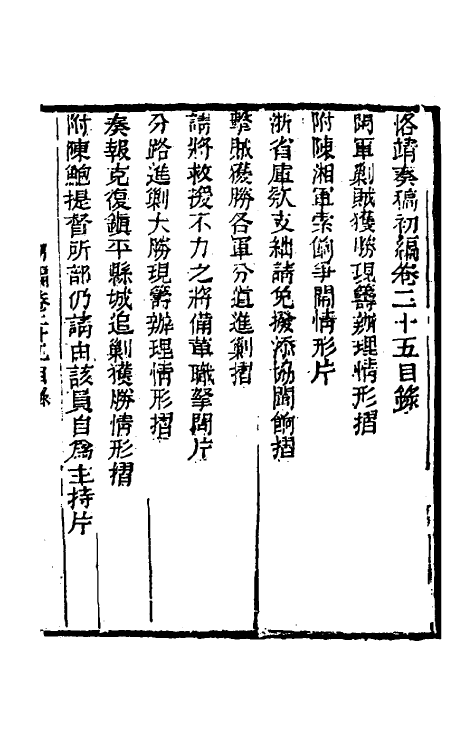 恪靖奏稿初編卷二十五目錄
閩軍剿賊獲勝現籌辦理情形摺
附陳湘軍索餉爭鬧情形片
浙省庫欵支絀請免撥添協閩餉摺
擊賊獲勝各軍分道進剿摺
請將救援不力之將備革職拏問片
分路進剿大勝現籌辦理情形摺
奏報克復鎭平縣城追剿獲勝情形摺
附陳鮑提督所部仍請由該員自爲主持片
初編卷二十五目錄